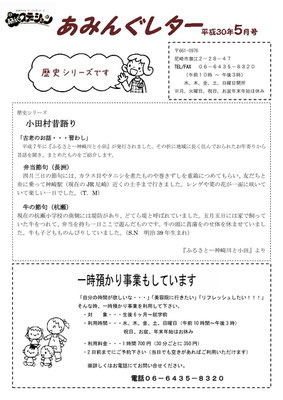 あみんぐレター 平成30年5月号
歴史シリーズです
〒661-0976
尼崎市潮江2-28-47
TEL/FAX 06-6435-8320
(午前10時~午後3時)
水、木、金、土、日曜日
※月、火曜日、祝日、お盆年末年始は休み
歴史シリーズ
小田村昔語り
「古老のお話・・・習わし」
平成7年に『ふるさと一神崎川と小田』が発行されました。その折に地域に長く住んでおられたお年寄りから
昔話を聞き、まとめたものをご紹介します。
弁当節句(長洲)
四月三日の節句には、カラス貝やタニシを煮たものや巻きずしを重箱につめてもらい、友だちと
舟に乗って神崎堤(現在のJR尼崎)近くの土手まで行きました。レンゲや菜の花が一面に咲いて
いて楽しい一日でした。(T.M)
牛の節句(杭瀬)
現在の杭瀬小学校の南側には堤防があり、どてら堤と呼ばれていました。五月五日には家で飼って
いた牛をつれて、弁当を持ち一日ここで遊んだものです。牛の頭に菖蒲をのせ体を休ませていまし
た。牛も子どもものんびりしていました。(S.N 明治39年生まれ)
『ふるさと一神崎川と小田』より
一時預かり事業もしています
「自分の時間が欲しいな・・・」「美容院に行きたい」「リフレッシュしたい!!」
そんな時、一時預かり事業を利用して下さい。
・対 象・・・生後6ヶ月~就学前
・利用時間・・・水、木、金、土、日曜日(午前10時~午後3時)
祝日、お盆、年末年始は休み
・利用料金・・・1時間700円(30分ごとに350円)
・2日前までにご予約下さい(当日でも空きがあればご利用いただけます)
※詳しくはお電話にてお問い合せください。
電話06-6435-8320